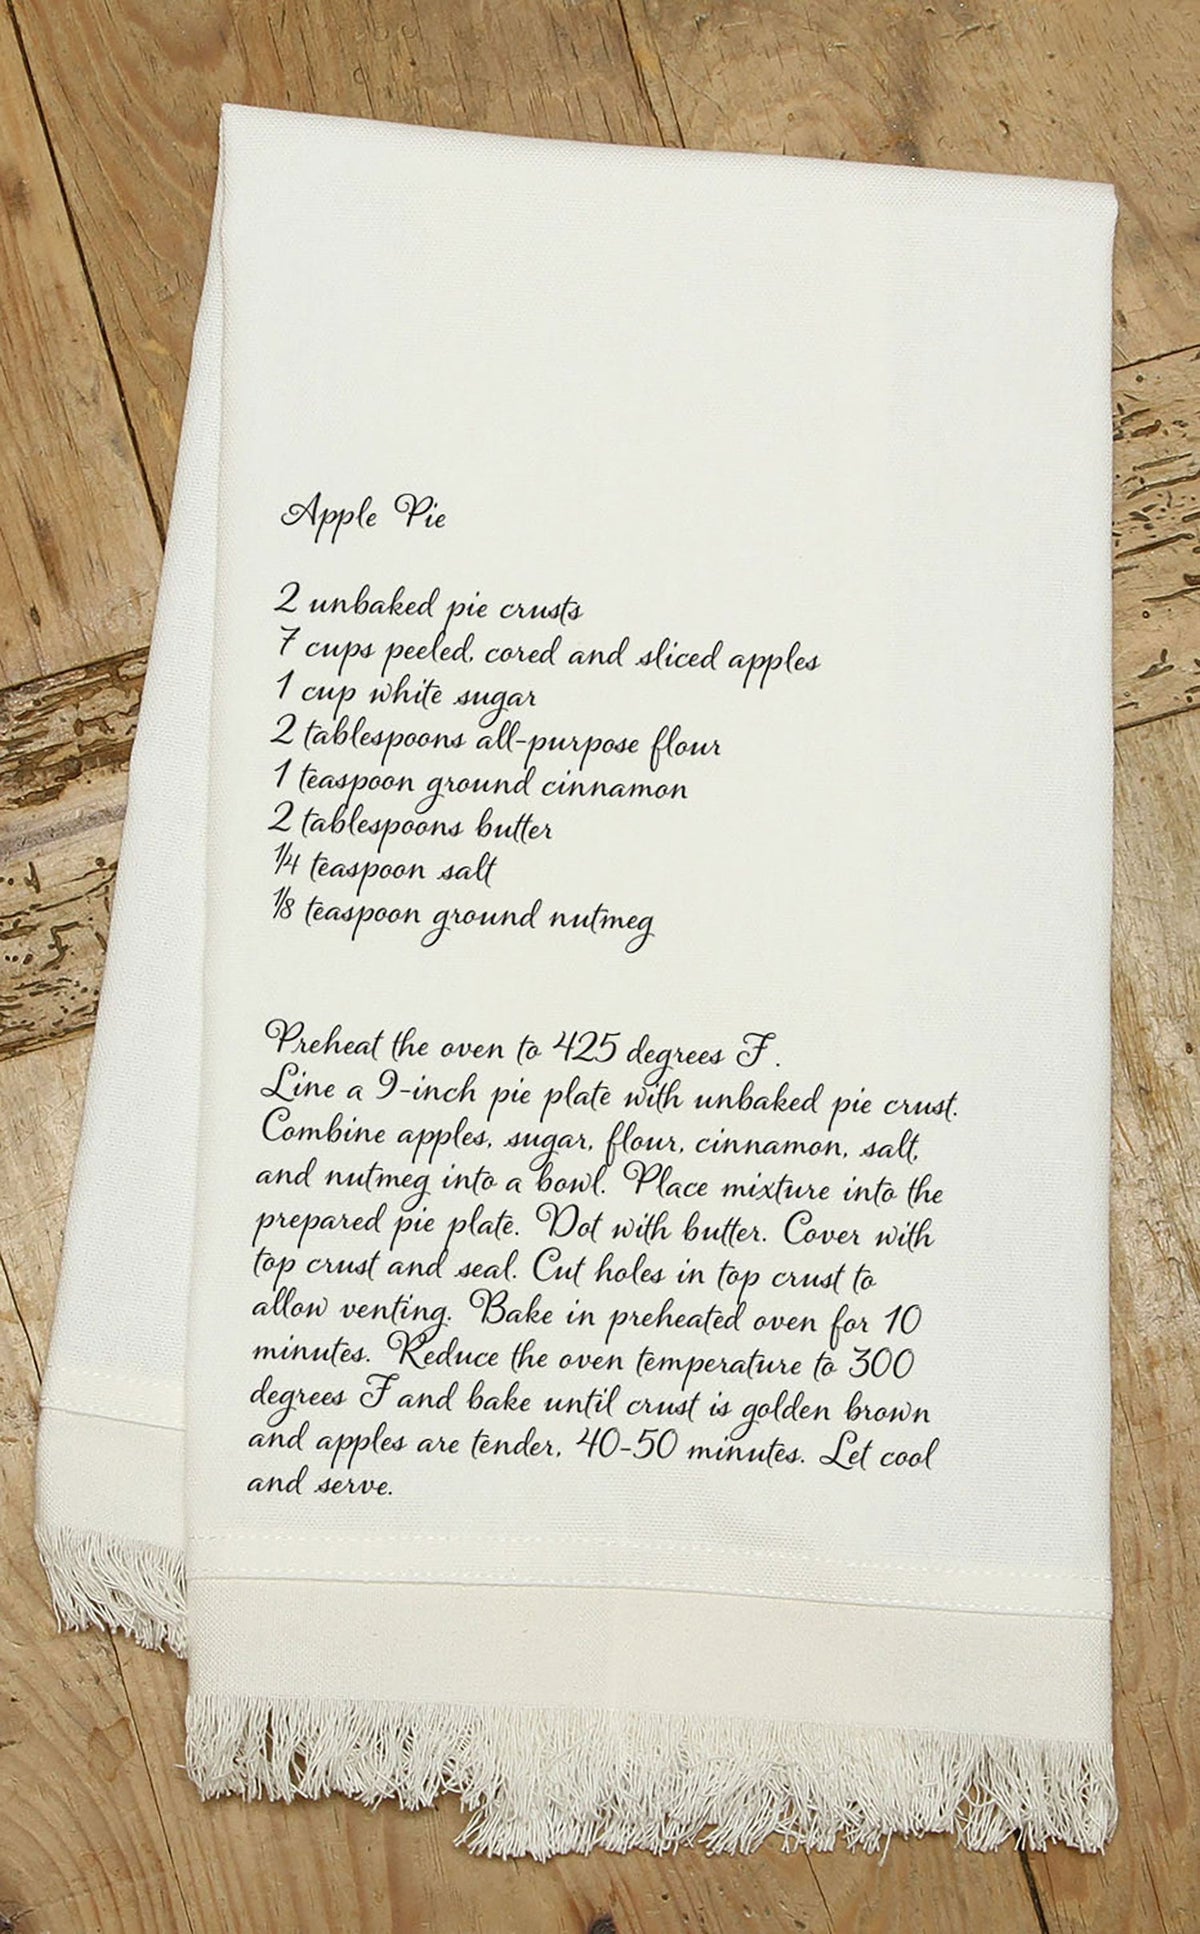 Apple Pie
2 unbaked pie crusts
7 cups peeled, cored and sliced apples
1 cup white sugar
2 tablespoons all-purpose flour
1 teaspoon ground cinnamon
2 tablespoons butter
1/4 teaspoon salt
1/8 teaspoon ground nutmeg
Preheat the oven to 425 degrees F .
Line a 9-inch pie plate with unbaked pie crust.
Combine apples, sugar, flour, cinnamon, salt,
and nutmeg into a bowl. Place mixture into the
prepared pie plate. Dot with butter. Cover with
top crust and seal. Cut holes in top crust to
allow venting. Bake in preheated oven for 10
minutes. Reduce the oven temperature to 300
degrees F and bake until crust is golden brown
and apples are tender, 40-50 minutes. Let cool
and serve.